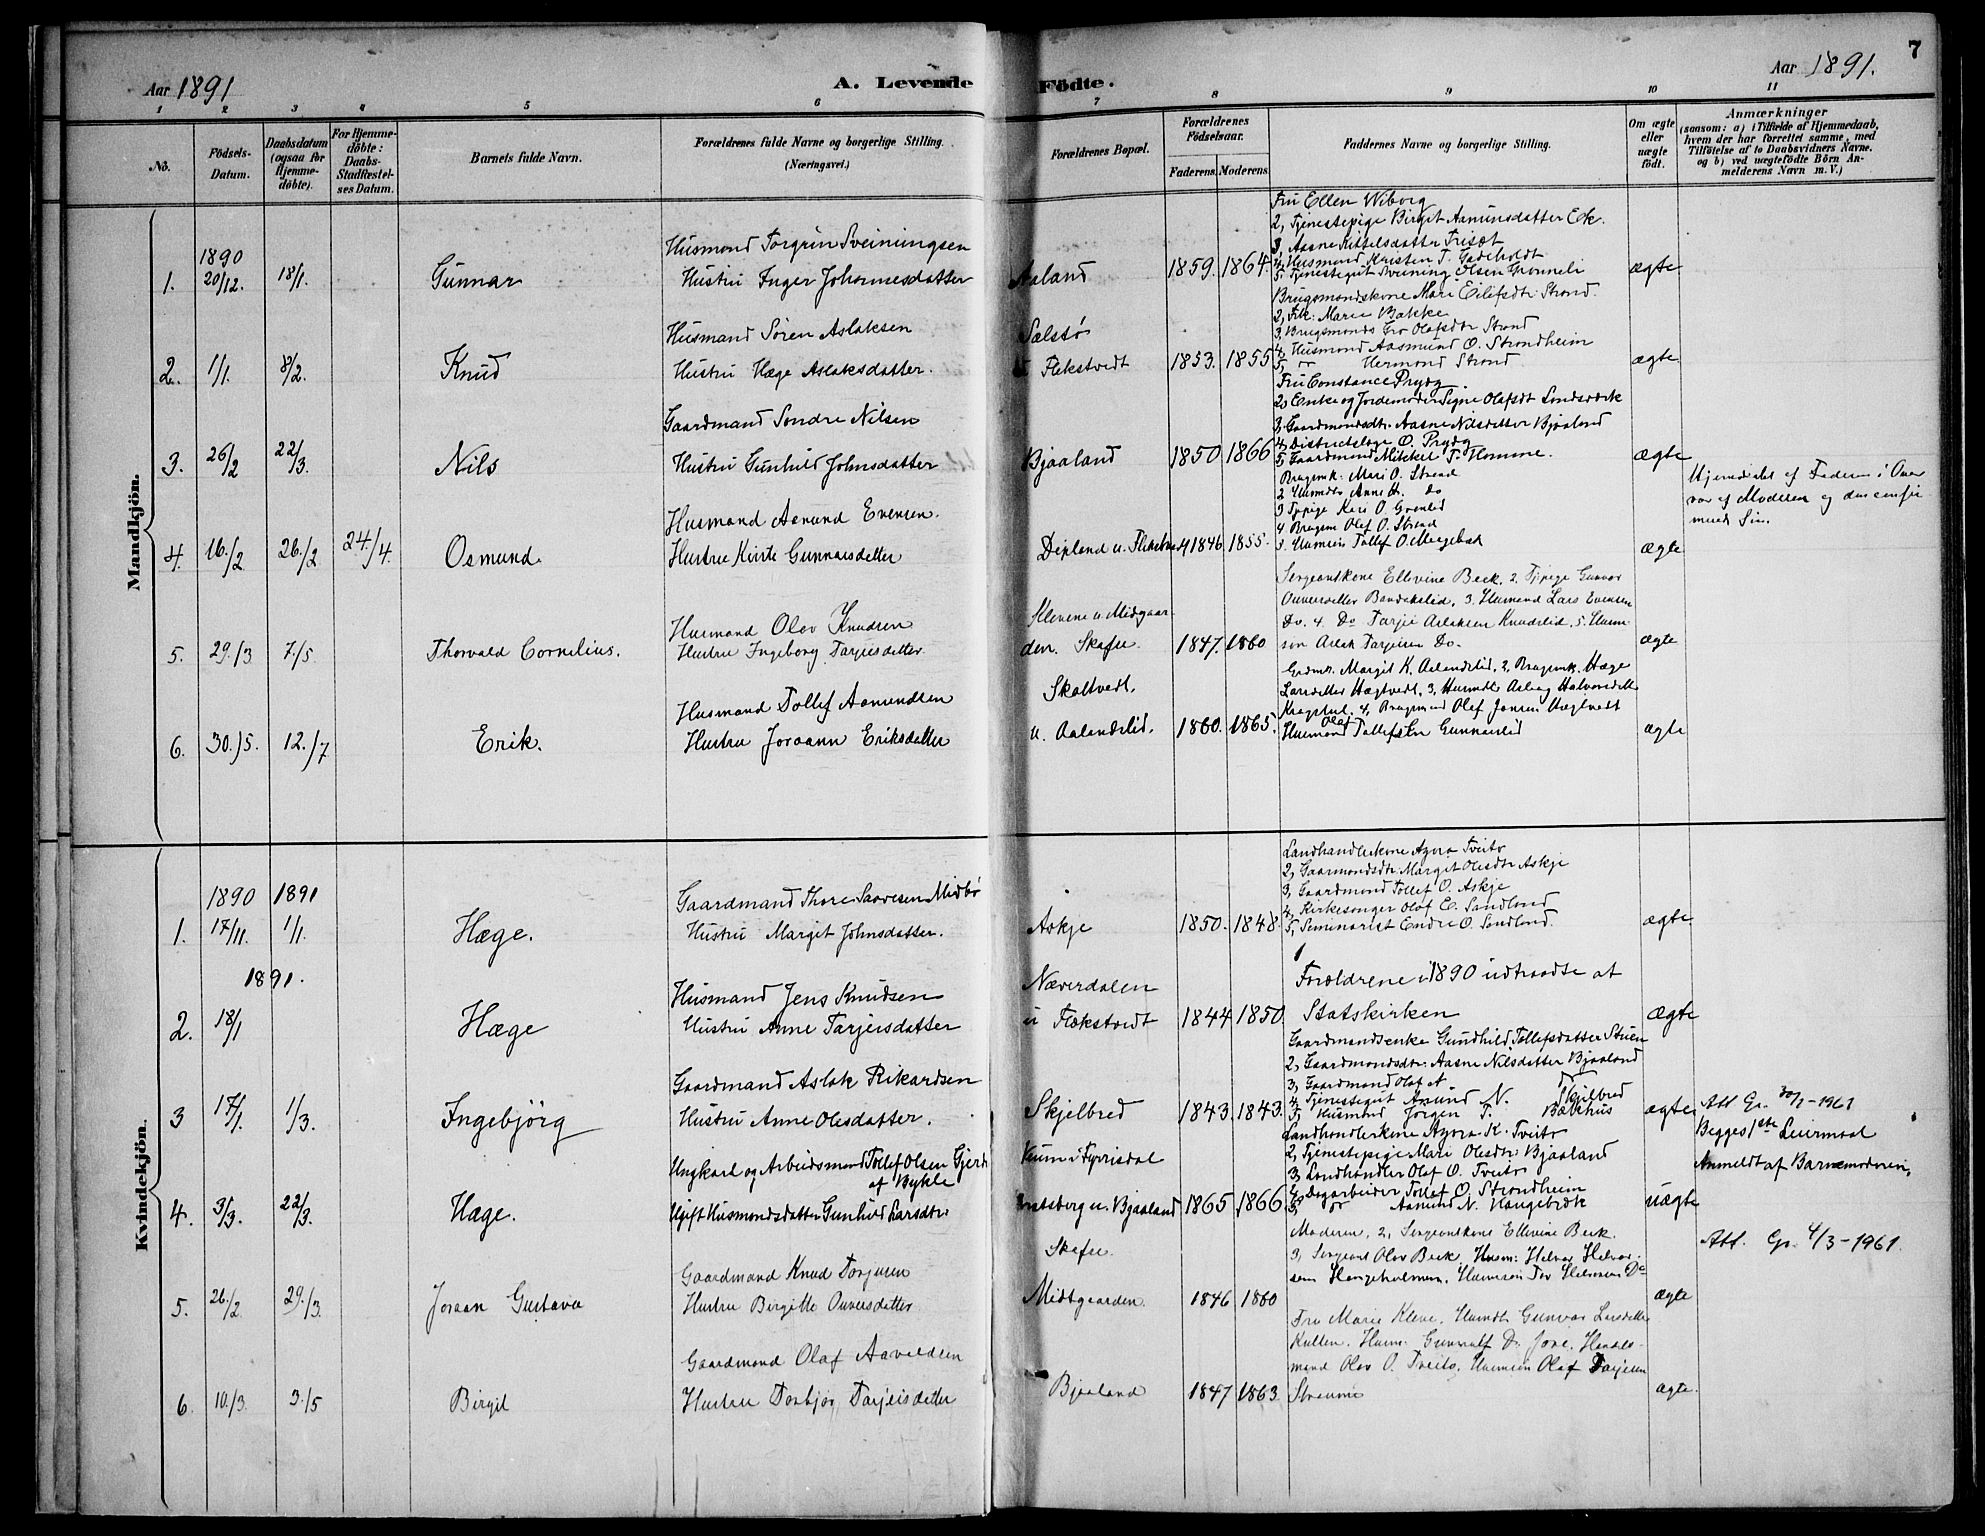 7
Aar 1891
A. Levende Födte.
Aar 1891.
1 2 3 4 5 6 7 8 9 10 11
No.
Födsels-Datum.
Daabsdatum (ogsaa för Hjemme-döbte).
For Hjemme-döbte: Daabs-Stadfæstel-ses Datum.
Barnets fulde Navn.
Forældrenes fulde Navne og borgerlige Stilling. (Næringsvei.)
Forældrenes Bopæl.
Forældrenes Födselsaar.
Faderens. Moderens.
Faddernes Navne og borgerlige Stilling.
Om ægte eller uægte födt.
Anmærkninger
(saasom: a) i Tilfælde af Hjemmedaab, hvem der har forrettet samme, med Tilföielse af to Daabsvidners Navne. og b) ved uægtefödte Börn An-melderens Navn m. V.)
Mandkjön.
1890
1. 20/12. 18/1. Gunnar
Husmand Torgrim Sveiningsen
Hustru Inger Johannesdatter
Aaland 1859. 1864.
Fru Ellen Wiborg
2, Tjenestepige Birgit Aamundsdatter Eek.
3, Aasne Kittelsdatter Trisæt
4, Husmand Kristen T. Gjeiholdt
5, Tjenestegut Sveining Olsen Grønneli
ægte
2. 1/1. 8/2. Knud
Husmand Sören Aslaksen
Hustru Hæge Aslaksdatter.
Salstø
u Flekstvedt 1853. 1855
Brugsmandskone Mari Eilefsdtr. Strond.
2, Frk. Marie Bakke
3, Brugsmands Gro Olafsdtr Strond
4, Husmand Aasmund O. Strondheim
5, Hermond Strond
ægte
3. 26/2 22/3. Nils
Gaardmand Sondre Nilsen
Hustru Gunhild Johnsdatter
Bjaaland 1850 1866
Fru Constance Prydz
2, Enke og Jordemoder Signe Olafsdt Londsværk
3, Gaardmandsdtr. Aasne Nilsdatter Bjaaland
4, Districtslæge O. Prydz
5, Gaardmand Mikkel T. Homme.
ægte
4. 16./2 26./2 24./4. Osmund.
Husmand Aamund Evensen.
Hustru Kirste Gunnarsdatter
Dipland u. Flekstvedt 1846 1855.
Brugsmk. Mari O. Strond
2 Husmdtr Anne H. Do
3 Tjpige Kari O. Grønlid
4 Brugsm Olaf O. Strond
ægte
Hjemdøbt af Faderen i Overvær af Moderen
5. 29./3 7./5 Thorvald Cornelius.
Husmand Olav Knudsen
Hustru Ingeborg Tarjeisdatter
Klevene u Midgaarden. Skafse 1847. 1860
Sergeantkone Ellevine Beck, 2, Tjpige Gunvor
Ouversdatter Bandakslid, 3. Husmand Lars Evensen
Do. 4. Do Tarjei Aslaksen Knudslid, 5. Husmsøn Aslak Tarjeisen Do.
ægte
6. 30./5. 12./7 Erik.
Husmand Tollef Aamundsen
Hustru Joraann Eriksdatter
Skaltvedt,
u. Aalandslid. 1860. 1865.
Grdmk. Margit K. Aalandslid, 2, Brugsmk. Hæge
Larsdatter Hægtvedt, 3, Husmdt Aslaug Halvorsdatter
4, Brugsmand Olaf Jonsen Hægtvedt
Husmand Olaf Tollefsen Gunnarslid
ægte
Kvindekjön.
1890 1891
1. 17/11. 1/1. Hæge.
Gaardmand Thore Saavesen Midbø
Hustru Margit Johnsdatter.
Askje 1850. 1848.
Landhandlerkone Azora Tveito
2, Gaarmondsdtr Margit Olesdtr Askje
3, Gaardmond Tollef O. Askje
4, Kirkesanger Olaf E. Sandlond
5, Seminarist Endre O. Sandlond.
ægte
1891.
2. 18/1 Hæge
Husmand Jens Knudsen
Hustru Anne Tarjeisdatter
Næverdalen
u Flekstvedt 1844 1850
Forældrene i 1890 udtraadte at
Statskirken
ægte
3 17/1. 1/3. Ingebjörg
Gaardmand Aslak Rikardsen
Hustru Anne Olesdatter.
Skjelbred 1843. 1843.
Gaardmandsenke Gundhild Tollefsdatter Stuen
2, Gaardmondsdtr. Aasne Nilsdatter Bjaaland
3, Gaardmond Olaf N.
4, Tjenestegut Asund N. Skjelbred
5, Husmand Jörgen T. Bakhus
ægte
Att Gr. 30/1-1961
4. 3/3. 22/3. Hæge.
Ungkarl og Arbeidsmand Tollef Olsen Gjerde
af Bykle
Ugift Husmondsdatter Gunhild Larsdtr.
Kum i Fyrrisdal
u. Bjaaland 1865 1866
Landhondlerkone Azora K. Tveito
2, Tjenestepige Mari Olesdtr. Bjaaland
3, Londhondler Olaf O. Tveito
4, Dagarbeider Tollef O. Strondheim
5, Aamund N. Haugebrok
uægte
Begges 1ste Leiermaal
Anmeldt af Barnemoderen,
5. 26./2 29./3. Joraan Gustava
Gaardmand Knud Torjusen
Hustru Birgitte Ouversdatter
Skafse.
Midtgaarden. 1846 1860
Moderen, 2, Sergeantkone Ellevine Beck.
3, Sergeant Olav Beck, Husm: Helvor Helvorsen Haugeholmen, Husmsøn Tov Helvorsen Do
ægte
Att. Gr. 4/3-1961.
6. 10./3. 3./5 Birgit
Gaardmand Olaf Aavoldsen
Hustru Torbjør Tarjeisdatter
Bjaaland 1847 1863.
Fru Marie Kleve, Husmdt Gunvor Larsdatter
Kulten. Husm. Gunnulf Do Jore, Handelsmand Olav O. Tveito, Husmsøn Olaf Tarjesen
Straume
ægte.